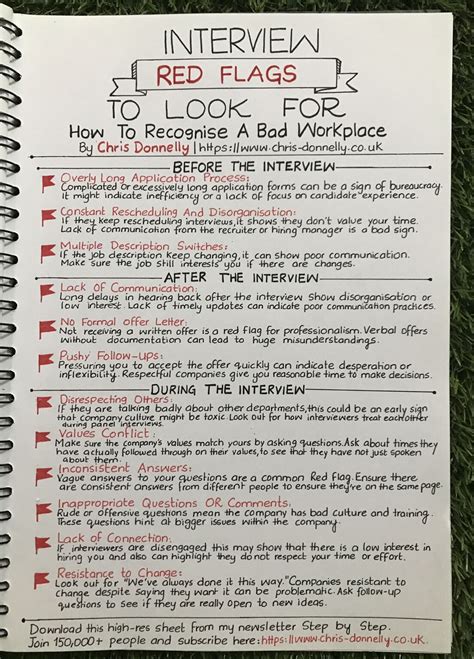 INTERVIEW
RED FLAGS
TO LOOK FOR
How To Recognise A Bad Workplace
By Chris Donnelly | https://www.chris-donnelly.co.uk
BEFORE THE INTERVIEW
Overly Long Application Process:
Complicated or excessively long application forms can be a sign of bureaucracy.
It might indicate inefficiency or a lack of focus on candidate experience.
Constant Rescheduling And Disorganisation:
If they keep rescheduling interviews, it shows they don't value your time.
Lack of communication from the recruiter or hiring manager is a bad sign.
Multiple Description Switches:
If the job description keep changing, it can show poor communication.
Make sure the job still interests you if there are changes.
AFTER THE INTERVIEW
Lack of Communication:
Long delays in hearing back after the interview show disorganisation or
low interest. Lack of timely updates can indicate poor communication practices.
No Formal Offer Letter:
Not receiving a written offer is a red flag for professionalism. Verbal offers
without documentation can lead to huge misunderstandings.
Pushy Follow-ups:
Pressuring you to accept the offer quickly can indicate desperation or
inflexibility. Respectful companies give you reasonable time to make decisions.
DURING THE INTERVIEW
Disrespecting Others:
If they are talking badly about other departments, this could be an early sign
that company culture might be toxic. Look out for how interviewers treat each other
during panel interviews.
Values Conflict:
Make sure the company's values match yours by asking questions. Ask about times they
have actually followed through on their values, to see that they have not just spoken
about them.
Inconsistent Answers:
Vague answers to your questions are a common Red flag. Ensure there
are consistent answers from different people to ensure they're on the same page.
Inappropriate Questions OR Comments:
Rude or offensive questions mean the company has bad culture and training.
These questions hint at bigger issues within the company.
Lack of Connection:
If interviewers are disengaged this may show that there is a low interest in
hiring you and also can highlight they do not respect your time or effort.
Resistance to Change:
Look out for "We've always done it this way." Companies resistant to
change despite saying they want it can be problematic. Ask follow-up
questions to see if they are really open to new ideas.
Download this high-res sheet from my newsletter Step by Step.
Join 150,000+ people and subscribe here: https://www.chris-donnelly.co.uk.